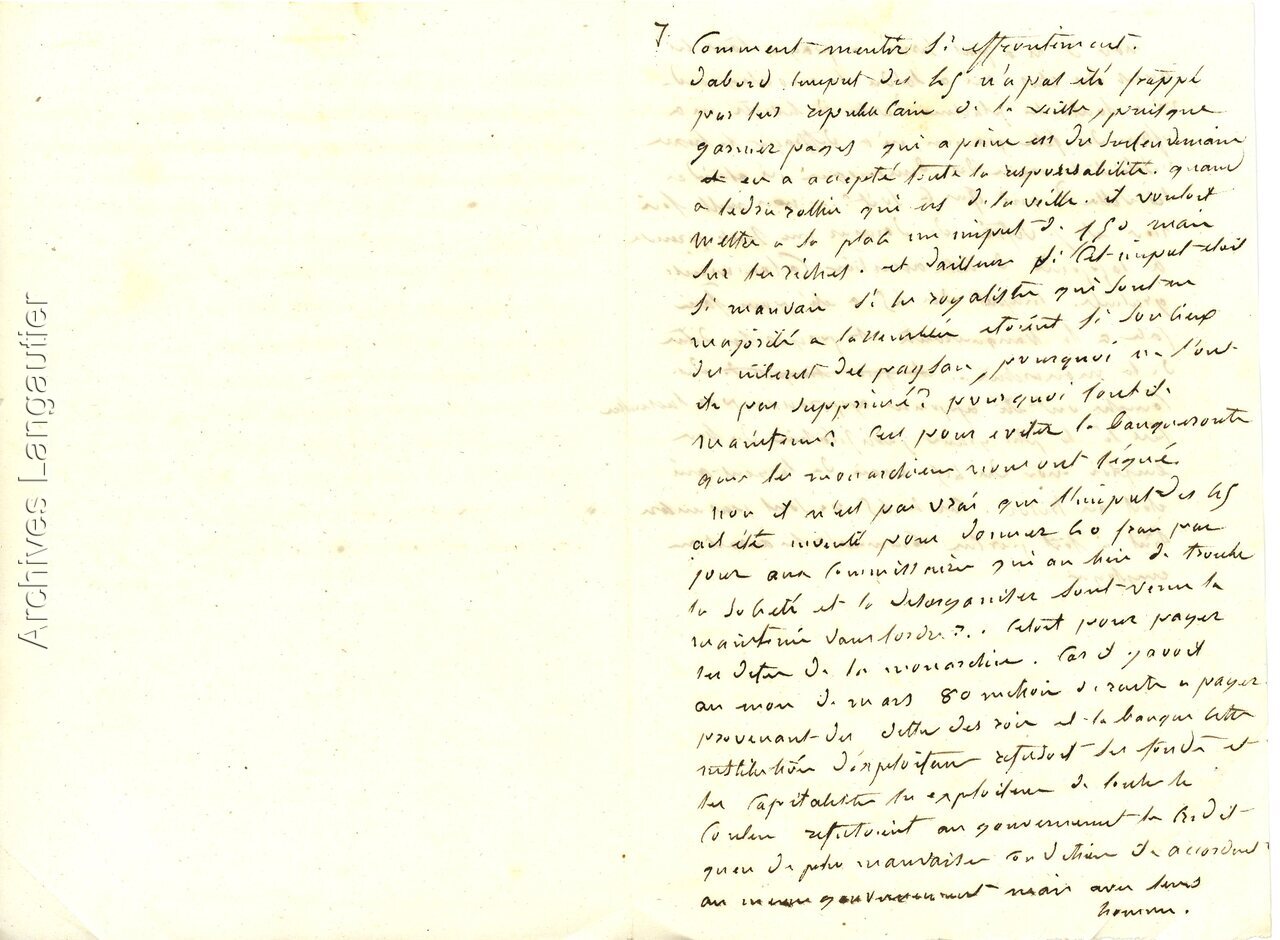 Archives Langautier
7
Comment mentir si effrontement.
dabord limput des 45 n'a pas eté frappé
par les republicain de la veille, puisque
garnier pages qui a peine est du surlendemain
en a accepté toute la responsabilité. quand
a ledru rollin qui est de la veille. il vouloit
mettre a la place un imput de 150 mais
sur les riches. et dailleur si cet imput etoit
si mauvais si les royaliste qui sont en
majorité a lassemblée etoient si soucieux
des interet des paysan, pourquoi ne l'ont
ils pas supprimé? pourquoi lont ils
maintenu? Cest pour eviter la banqueroute
que les monarchiens nous ont légué.
non il n'est pas vrai que l'imput des 45
ait été inventé pour donner 40 fran par
jour aux Commissaire qui au lieu de trouble
la societé et la desorganiser sont venu la
maintenir dans lordre?.. Cetoit pour payer
les dettes de la monarchie. Car il y avoit
au mois de mars 80 million de rente a payer
provenant des dettes des rois et la banque cette
institution d'exploiteur refusoit des fonds et
les Capitaliste les exploiteur de toute le
Couleur refusoient au gouvernement le Credit
que de plus mauvaise Condition ils accordent
au meme gouvernement mais avec leurs
homme.